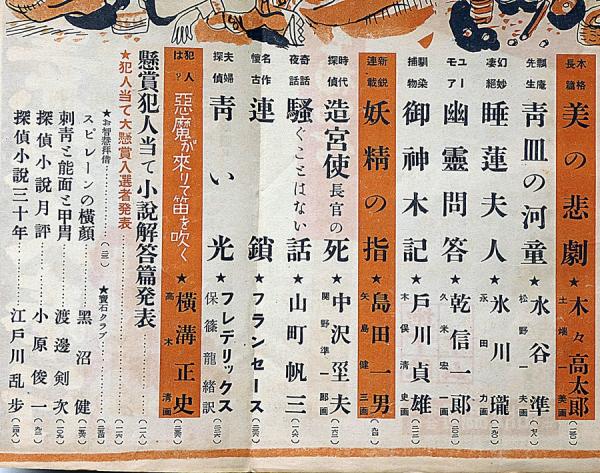 本格長篇 美の悲劇 ★ 木々高太郎
土端一美画
瓢庵先生 青皿の河童 ★ 水谷準
松野一夫画
幻妙凄絶 睡蓮夫人 ★ 氷川瓏
永田力画
ユーモア 幽靈問答 ★ 乾信一郎
久米宏一画
馴染捕物 御神木記 ★ 戸川貞雄
木俣清史画
新鋭連載 妖精の指 ★ 島田一男
矢島健三画
時代探偵 造宮使長官の死 ★ 中沢巠夫
関野準一郎画
奇話夜話 騒ぐことはない話 ★ 山町帆三
懐古名作 連鎖 ★ フランセース
夫婦探偵 青い光 ★ フレデリックス
保篠龍緒訳
犯人は？ 惡魔が來りて笛を吹く ★ 横溝正史
高木清画
懸賞犯人当て小説解答篇発表
★犯人当て大懸賞入選者発表
★お智慧拝借 ★寶石クラブ
スピレーンの横顔 黑沼健
刺青と能面と甲冑 渡邊剣次
探偵小説月評 小原俊一
探偵小説三十年 江戸川乱歩